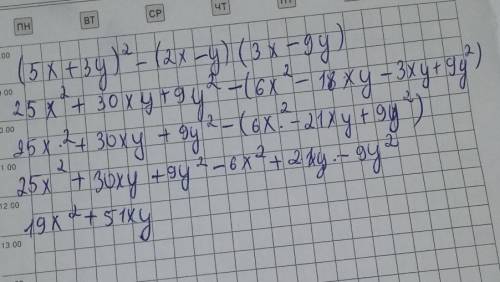 ПН ВТ СР ЧТ
(5x+3y)² - (2x-y)(3x-9y)
25x² + 30xy + 9y² - (6x² - 18xy - 3xy + 9y²)
25x² + 30xy + 9y² - (6x² - 21xy + 9y²)
25x² + 30xy + 9y² - 6x² + 21xy - 9y²
11:00
12:00
19x² + 51xy
13:00